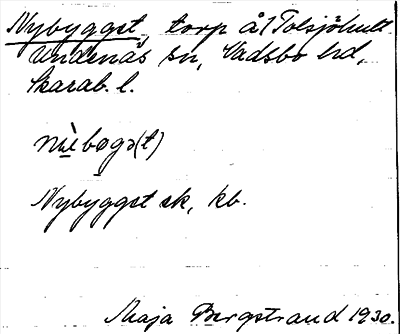 Nybygget, torp å 1 Tolsjöhult
Undenäs sn, Vadsbo hd,
Skarab. l.
nẁ̱ bøgə(t)
Nybygget sk, kb.
Maja Bergstrand 1930.